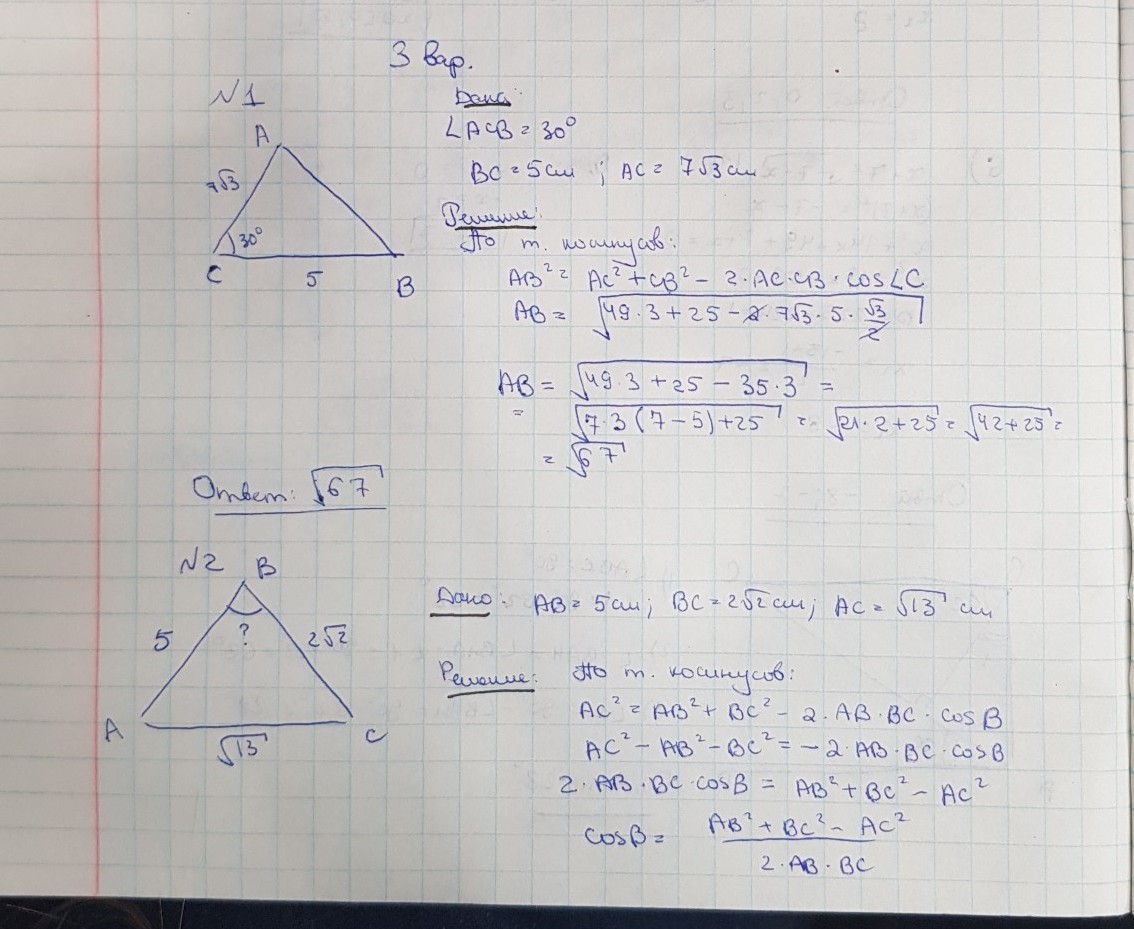 3 вар.
№1
A
7√3
30°
C
5
B
Дано:
∠ACB = 30°
BC = 5см ; AC = 7√3 см
Решение:
По т. косинусов:
AB² = AC² + CB² - 2·AC·CB·cos∠C
AB = √(49·3 + 25 - 2·7√3·5·√3/2)
AB = √(49·3 + 25 - 35·3) =
= √(7·3(7-5)+25) = √(21·2+25) = √(42+25) =
= √67
Ответ: √67
№2
B
5
?
2√2
A
√13
C
Дано: AB = 5см; BC = 2√2 см; AC = √13 см
Решение: По т. косинусов:
AC² = AB² + BC² - 2·AB·BC·cosB
AC² - AB² - BC² = -2·AB·BC·cosB
2·AB·BC·cosB = AB² + BC² - AC²
cosB = (AB² + BC² - AC²)/(2·AB·BC)